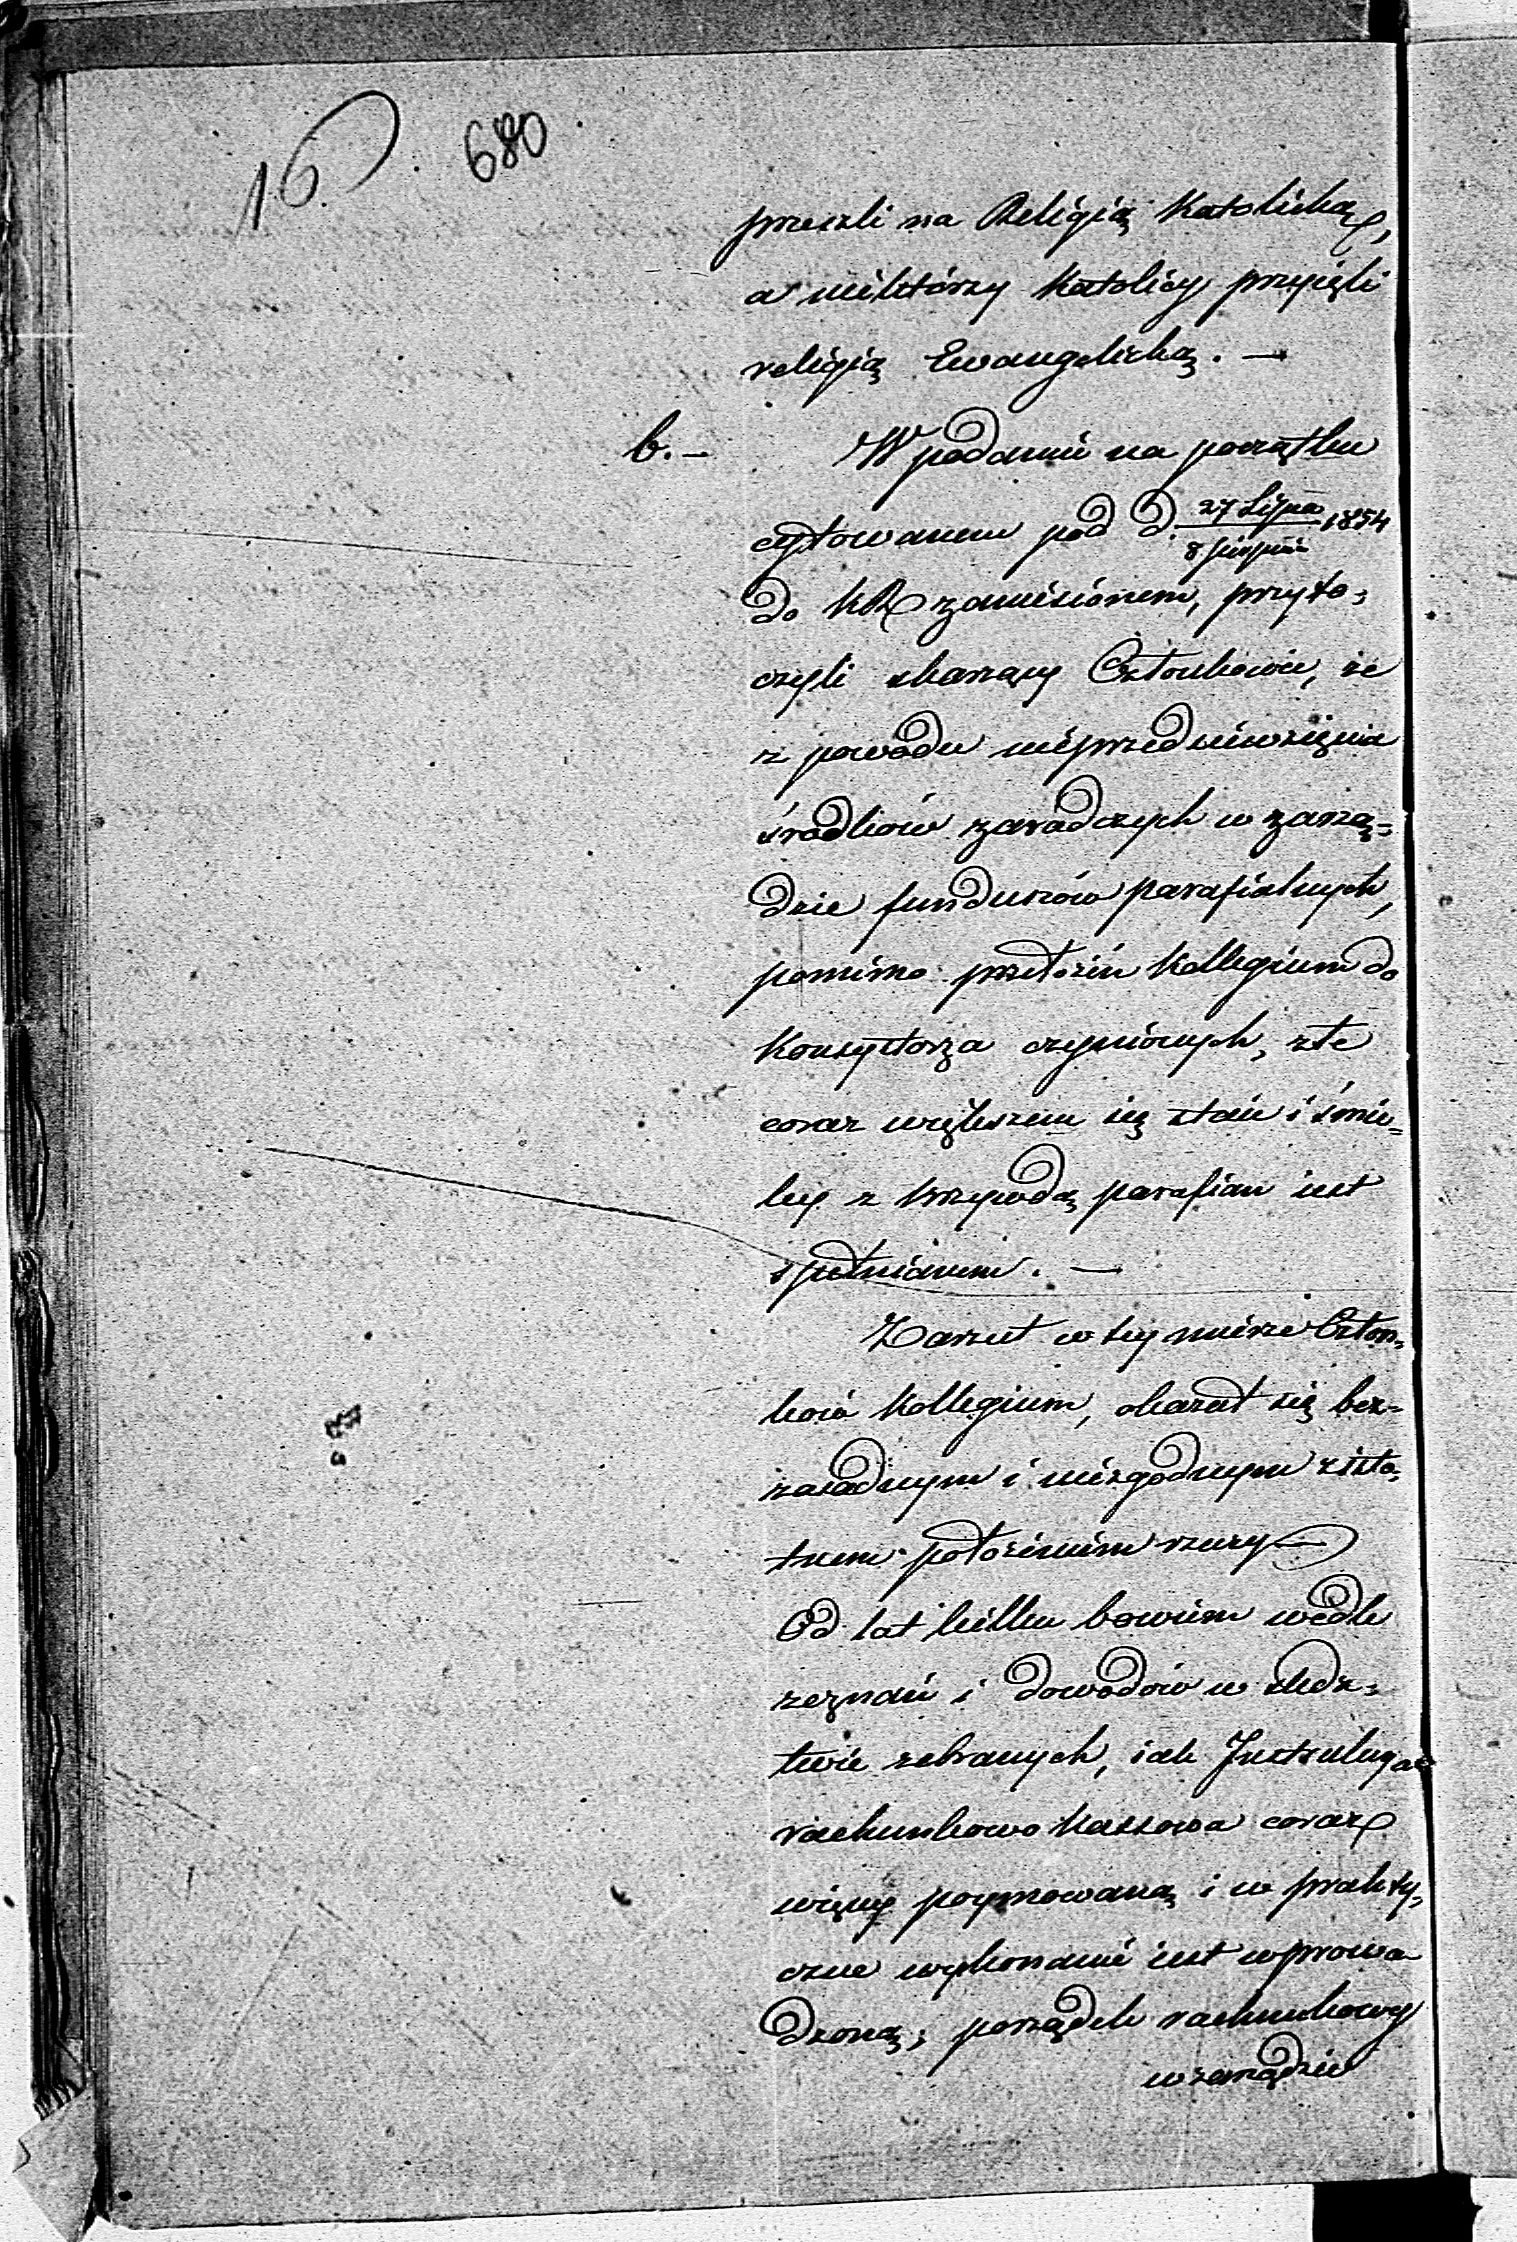 16. 680
przeszli na Religią Katolicką,
a niektórzy Katolicy przyięli
religią Ewangelicką. —
b. — W podaniu na początku
cytowanem pod d. 27 Lipca / 8 Sierpnia 1854
do KR zaniesionem, przyto-
czyli skarżący Członkowie, że
z powodu nieprzedsięwzięcia
środków zaradczych w zarzą-
dzie funduszów parafialnych,
pomimo przełożeń Kollegium do
Konsystorza czynionych, złe
coraz większem się staie i śmie-
ley z krzywdą parafian iest
spełnianem. —
Zarzut w tey mierze Człon-
ków Kollegium, okazał się bez-
zasadnym i niezgodnym z isto-
tnem położeniem rzeczy —
Od lat kilku bowiem wedle
zeznań i dowodów w śledz-
twie zebranych, iak
rachunkowo Kassowa coraz
więcey poymowaną i w prakty-
czne wykonanie iest wprowa
dzoną; porządek rachunkowy
w zarządzie